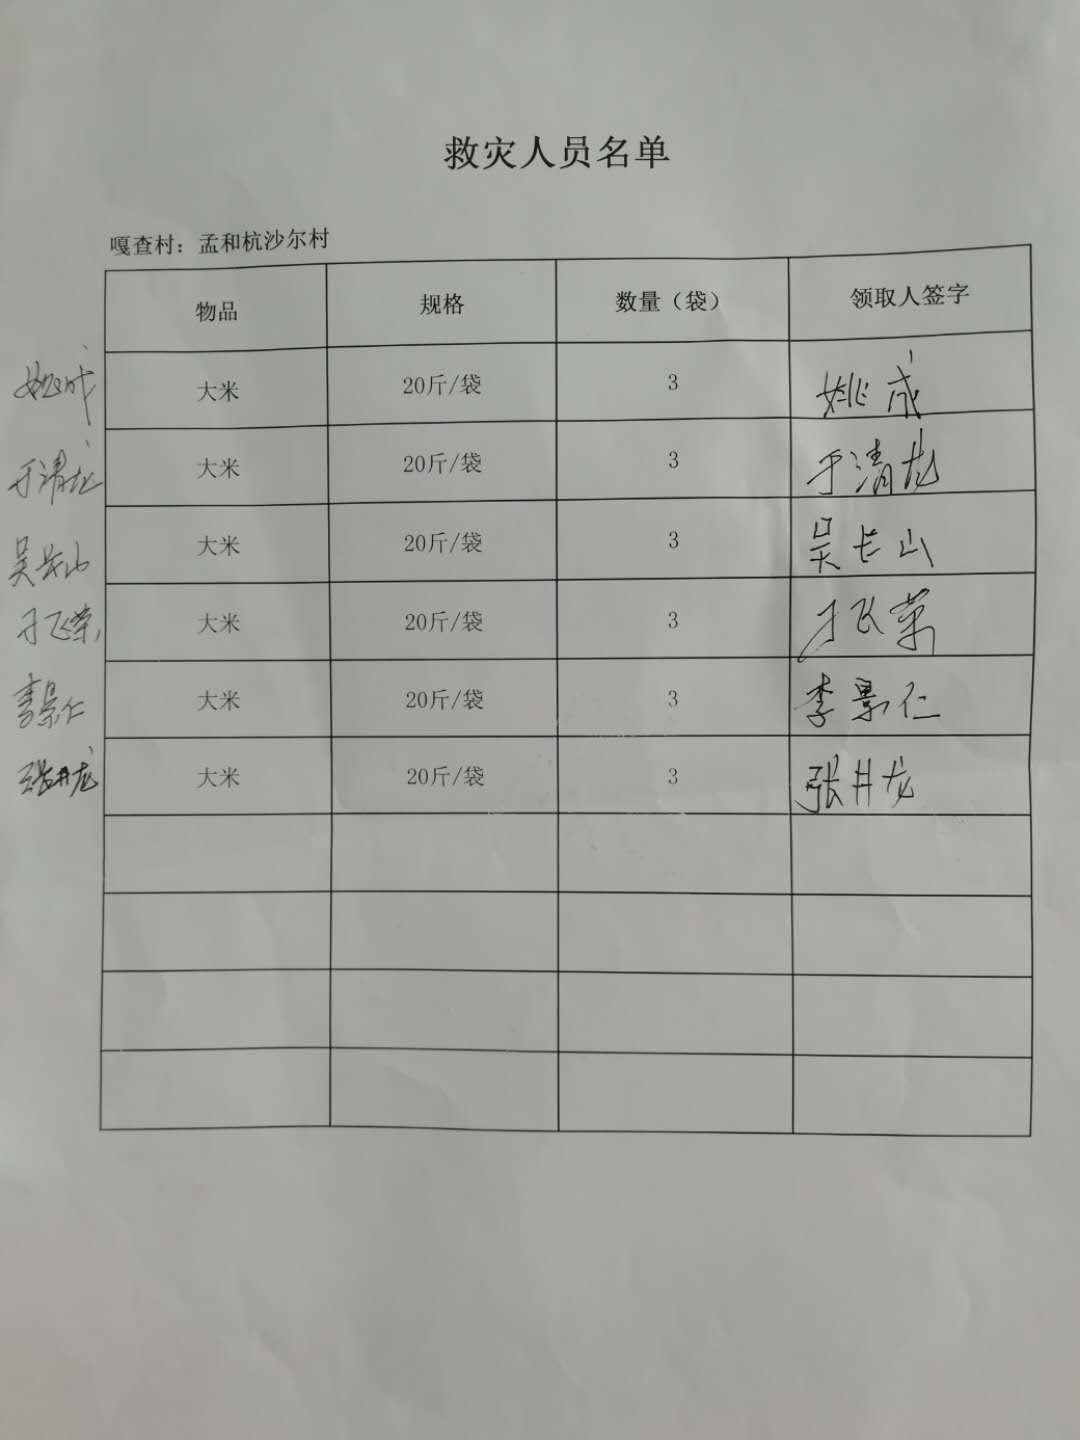 救灾人员名单
嘎查村：孟和杭沙尔村
物品 规格 数量（袋） 领取人签字
姚成 大米 20斤/袋 3 姚成
于清龙 大米 20斤/袋 3 于清龙
吴长山 大米 20斤/袋 3 吴长山
于飞荣 大米 20斤/袋 3 于飞荣
李景仁 大米 20斤/袋 3 李景仁
张井龙 大米 20斤/袋 3 张井龙